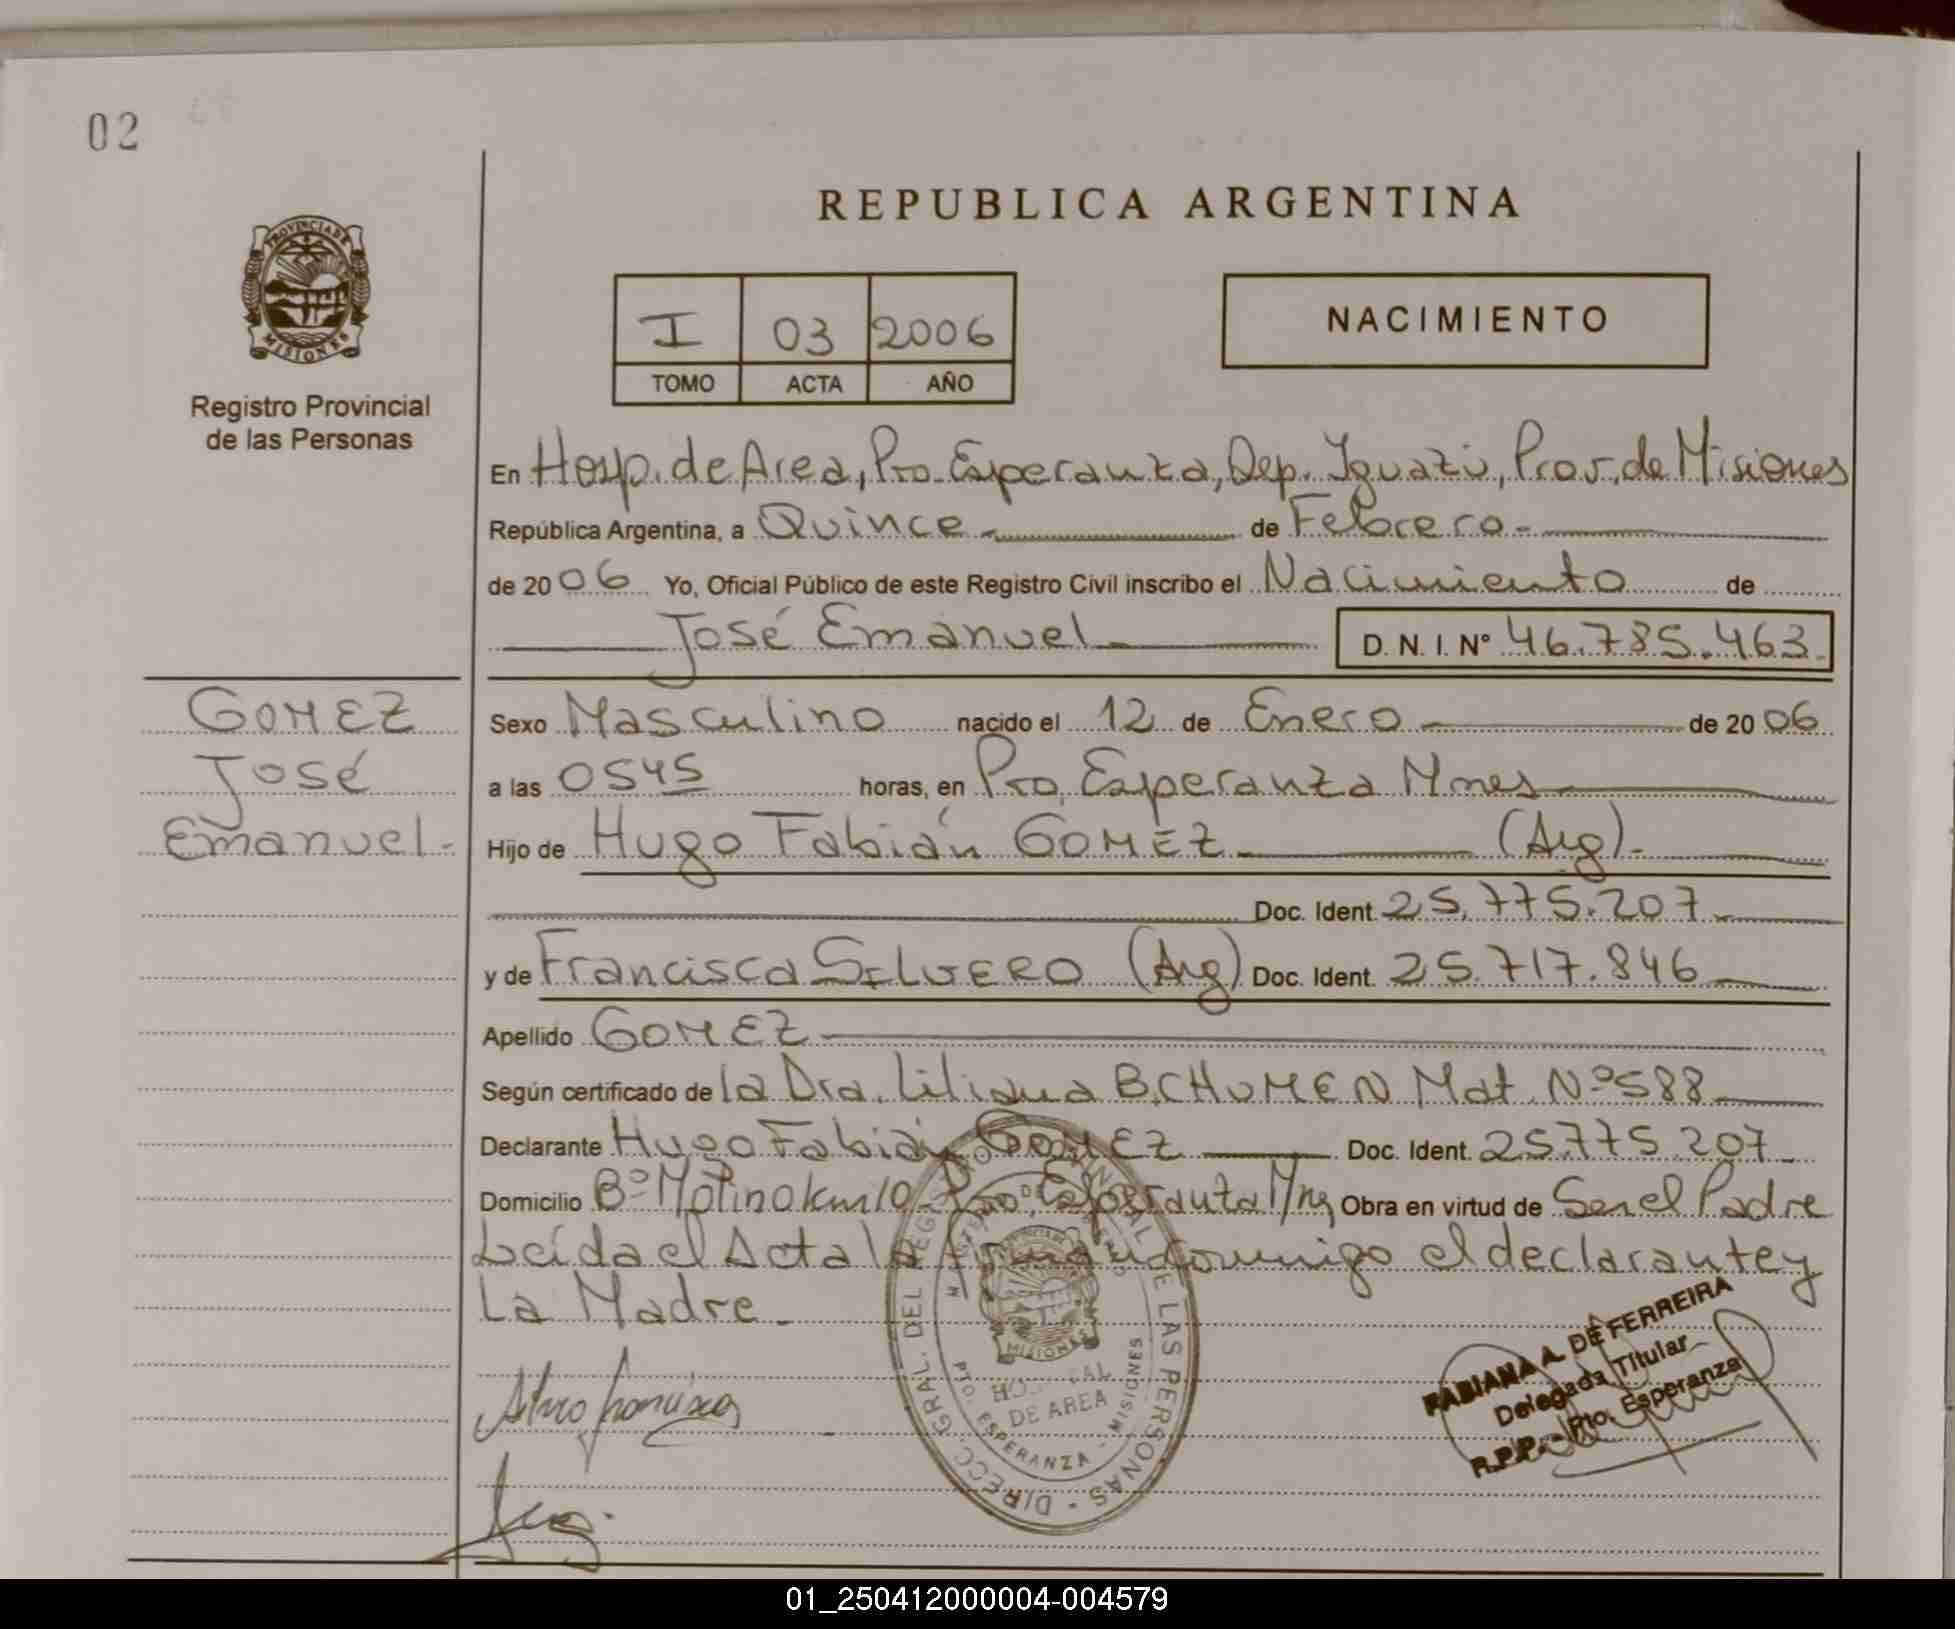 02
REPUBLICA ARGENTINA
PROVINCIA DE
MISIONES
Registro Provincial
de las Personas
I 03 2006
TOMO ACTA AÑO
NACIMIENTO
En Hosp. de Area, Pto. Esperanza, Dep. Iguazú, Prov. de Misiones
República Argentina, a Quince de Febrero.-
de 2006 Yo, Oficial Público de este Registro Civil inscribo el Nacimiento de
José Emanuel D. N. I. Nº 46.785.463.
GOMEZ
José
Emanuel-
Sexo Masculino nacido el 12 de Enero de 2006
a las 0545 horas, en Pto. Esperanza Mnes
Hijo de Hugo Fabián GOMEZ (Arg).
Doc. Ident. 25.775.207
y de Francisca SILVERO (Arg) Doc. Ident. 25.717.846
Apellido GOMEZ
Según certificado de la Dra. Liliana B. CHUMEN Mat. Nº 588
Declarante Hugo Fabián GOMEZ Doc. Ident. 25.775.207
Domicilio Bº Molino km 10 Pto. Esperanza Mnes Obra en virtud de Ser el Padre
Leída el Acta la firman conmigo el declarante y
La Madre.
DIRECC. GRAL. DEL REGISTRO PROVINCIAL DE LAS PERSONAS
MISIONES
HOSPITAL
DE AREA
PTO. ESPERANZA - MISIONES
FABIANA A. DE FERREIRA
Delegada Titular
R.P.P. - Pto. Esperanza
01_250412000004-004579